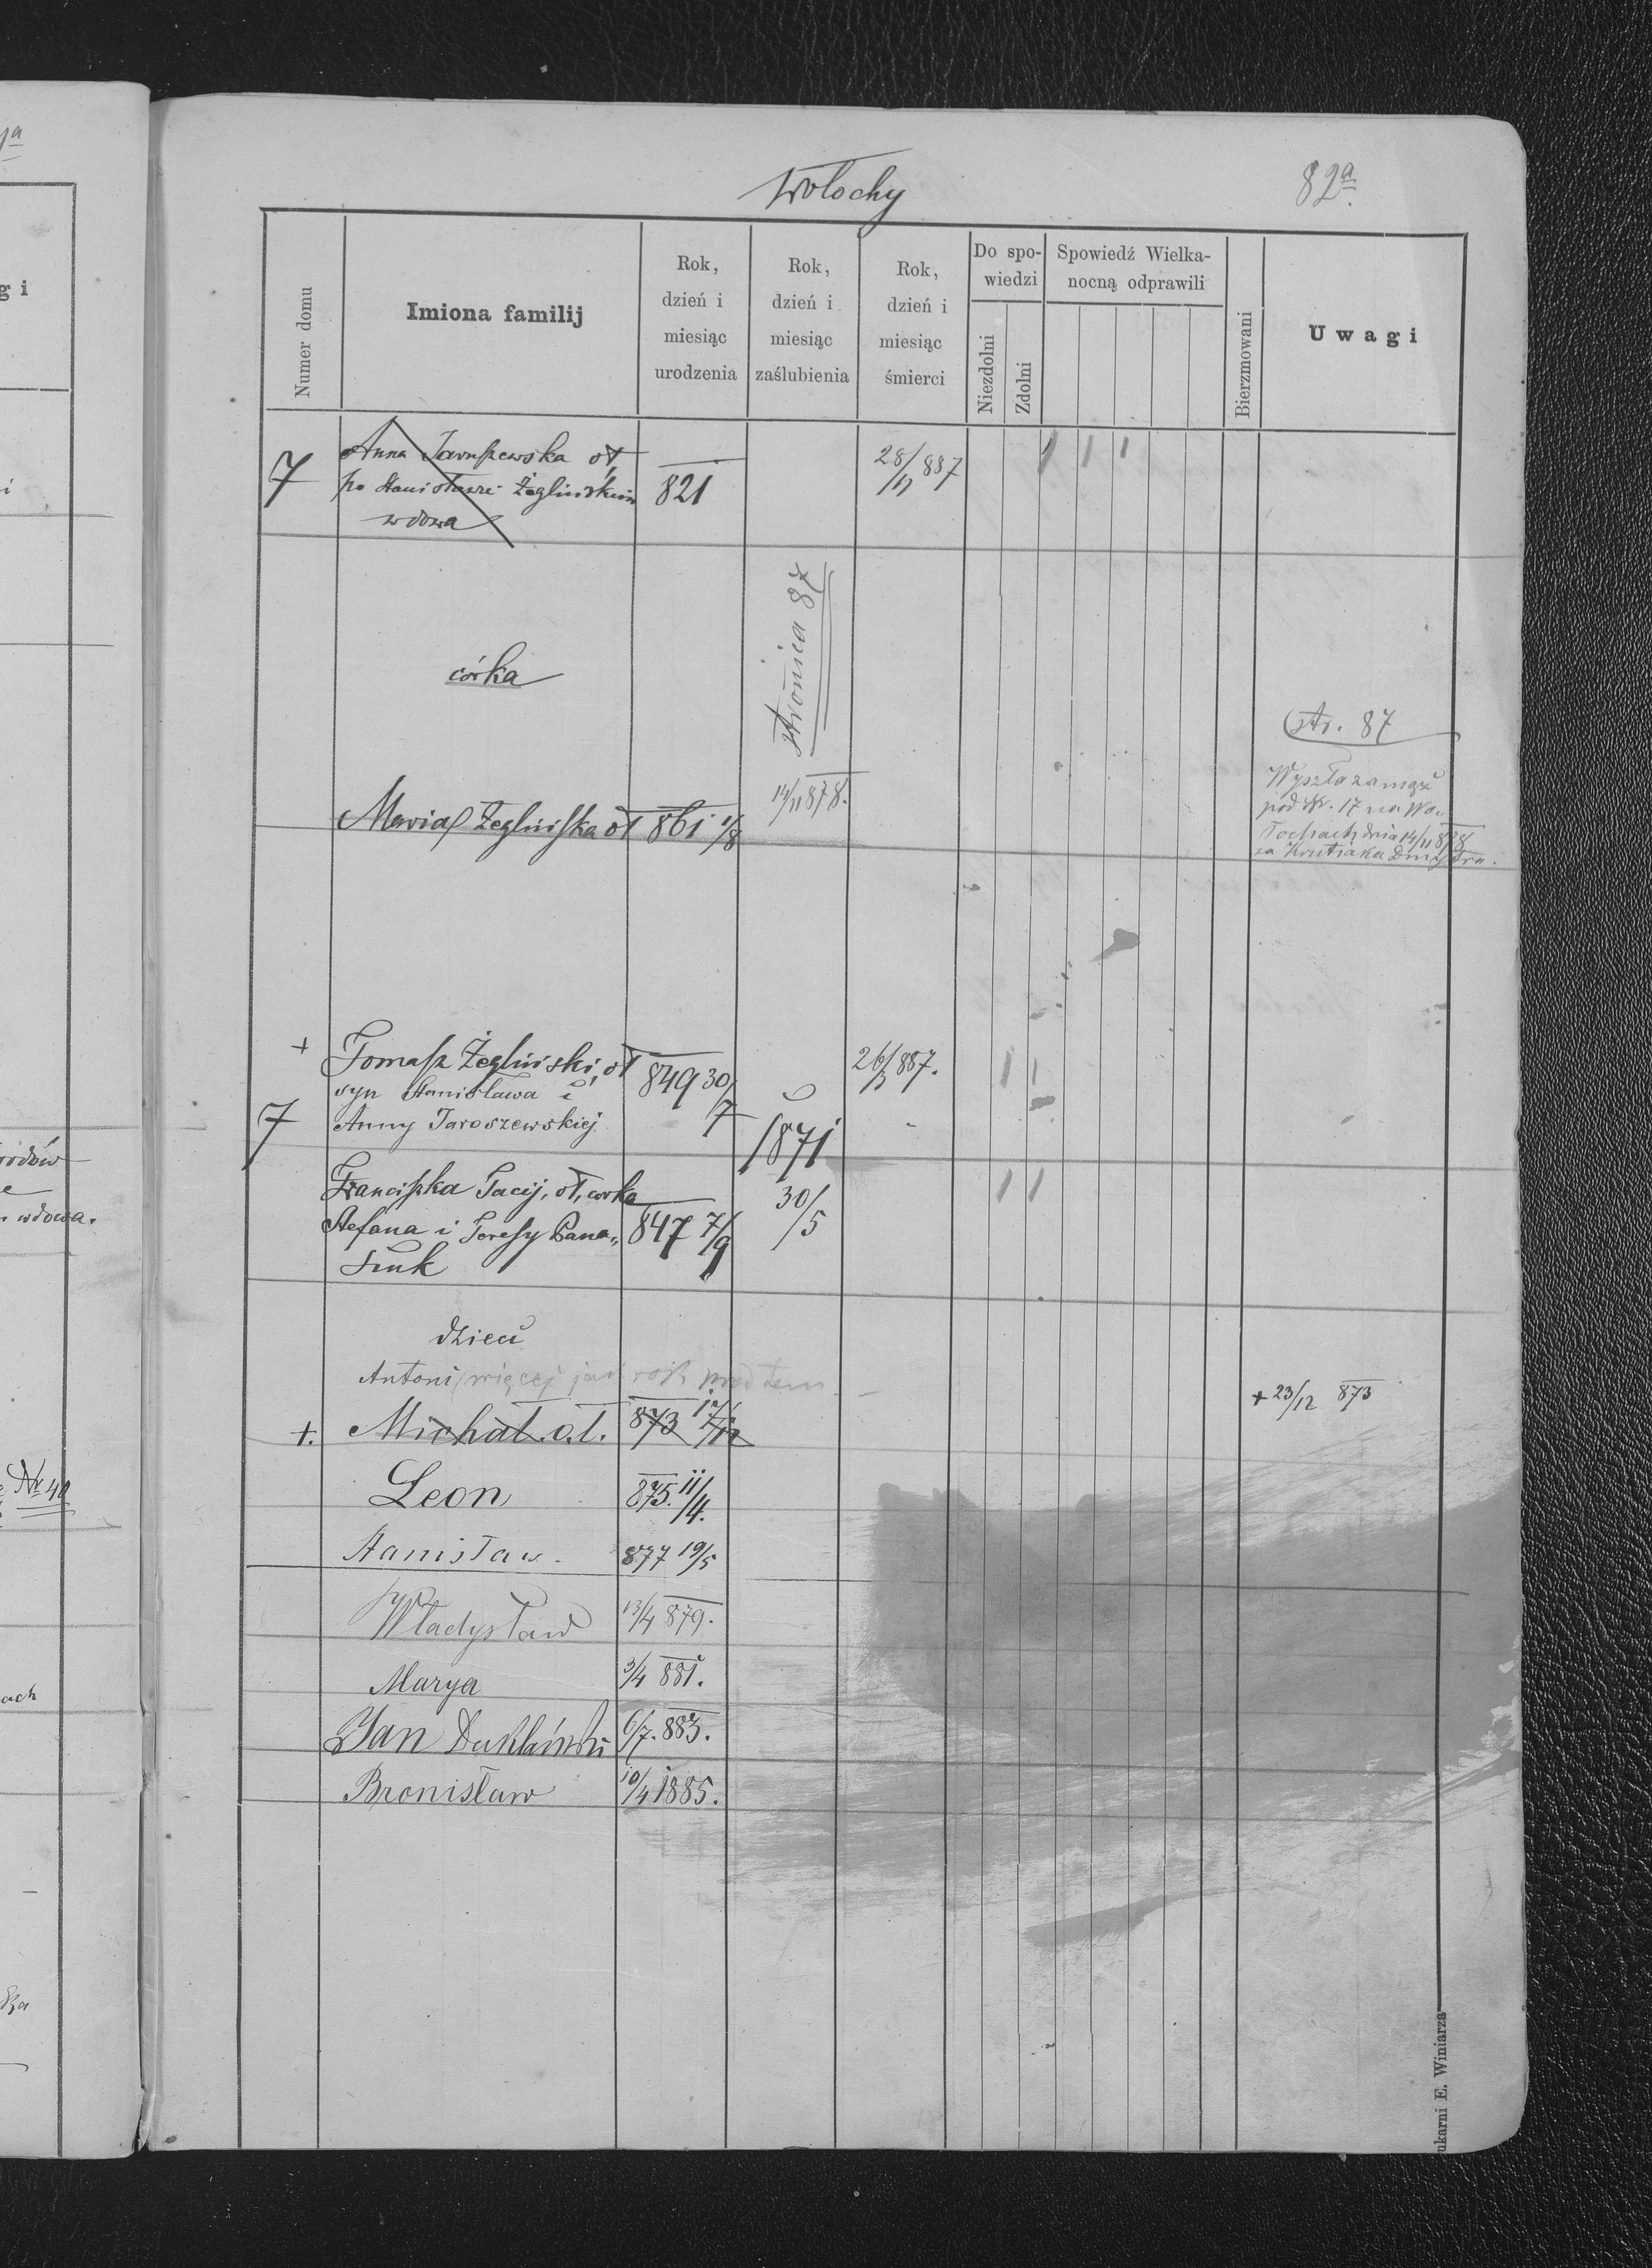 Wołochy
82a.
Numer domu
Imiona familij
Rok,
dzień i
miesiąc
urodzenia
Rok,
dzień i
miesiąc
zaślubienia
Rok,
dzień i
miesiąc
śmierci
Do spo-
wiedzi
Niezdolni
Zdolni
Spowiedź Wielka-
nocną odprawili
Bierzmowani
Uwagi
7
Anna Jaruszewska ół
po Stanisławie Żeglińskim
wdowa
821
28/11 887
1 1 1
córka
stronica 87
str. 87
Maria Żeglińska oł
861 1/8
14/11 878.
Wyszła za mąż
pod Nr. 17 na Wo-
łochach dnia 14/11 878
za Krutiaka Dmytra.
+
Tomasz Żegliński, oł
syn Stanisława i
Anny Jaroszewskiej
7
849 30/7
1871
30/5
26/3 887.
1 1
Franciszka Tacij, oł, córka
Stefana i Teresy Pana„
siuk
847 7/9
1 1
dzieci
Antoni więcej jak rok przed tem
+.
Michał. o.ł.
873 12/12
+ 23/12 873
Leon
875. 11/4.
Stanisław.
877 19/5
Władysław
13/4 879.
Marya
3/4 881.
Jan Duklański
6/7. 883.
Bronisław
10/4 1885.
ukarni E. Winiarza
g i
rodów
wdowa.
Nr 40
ach